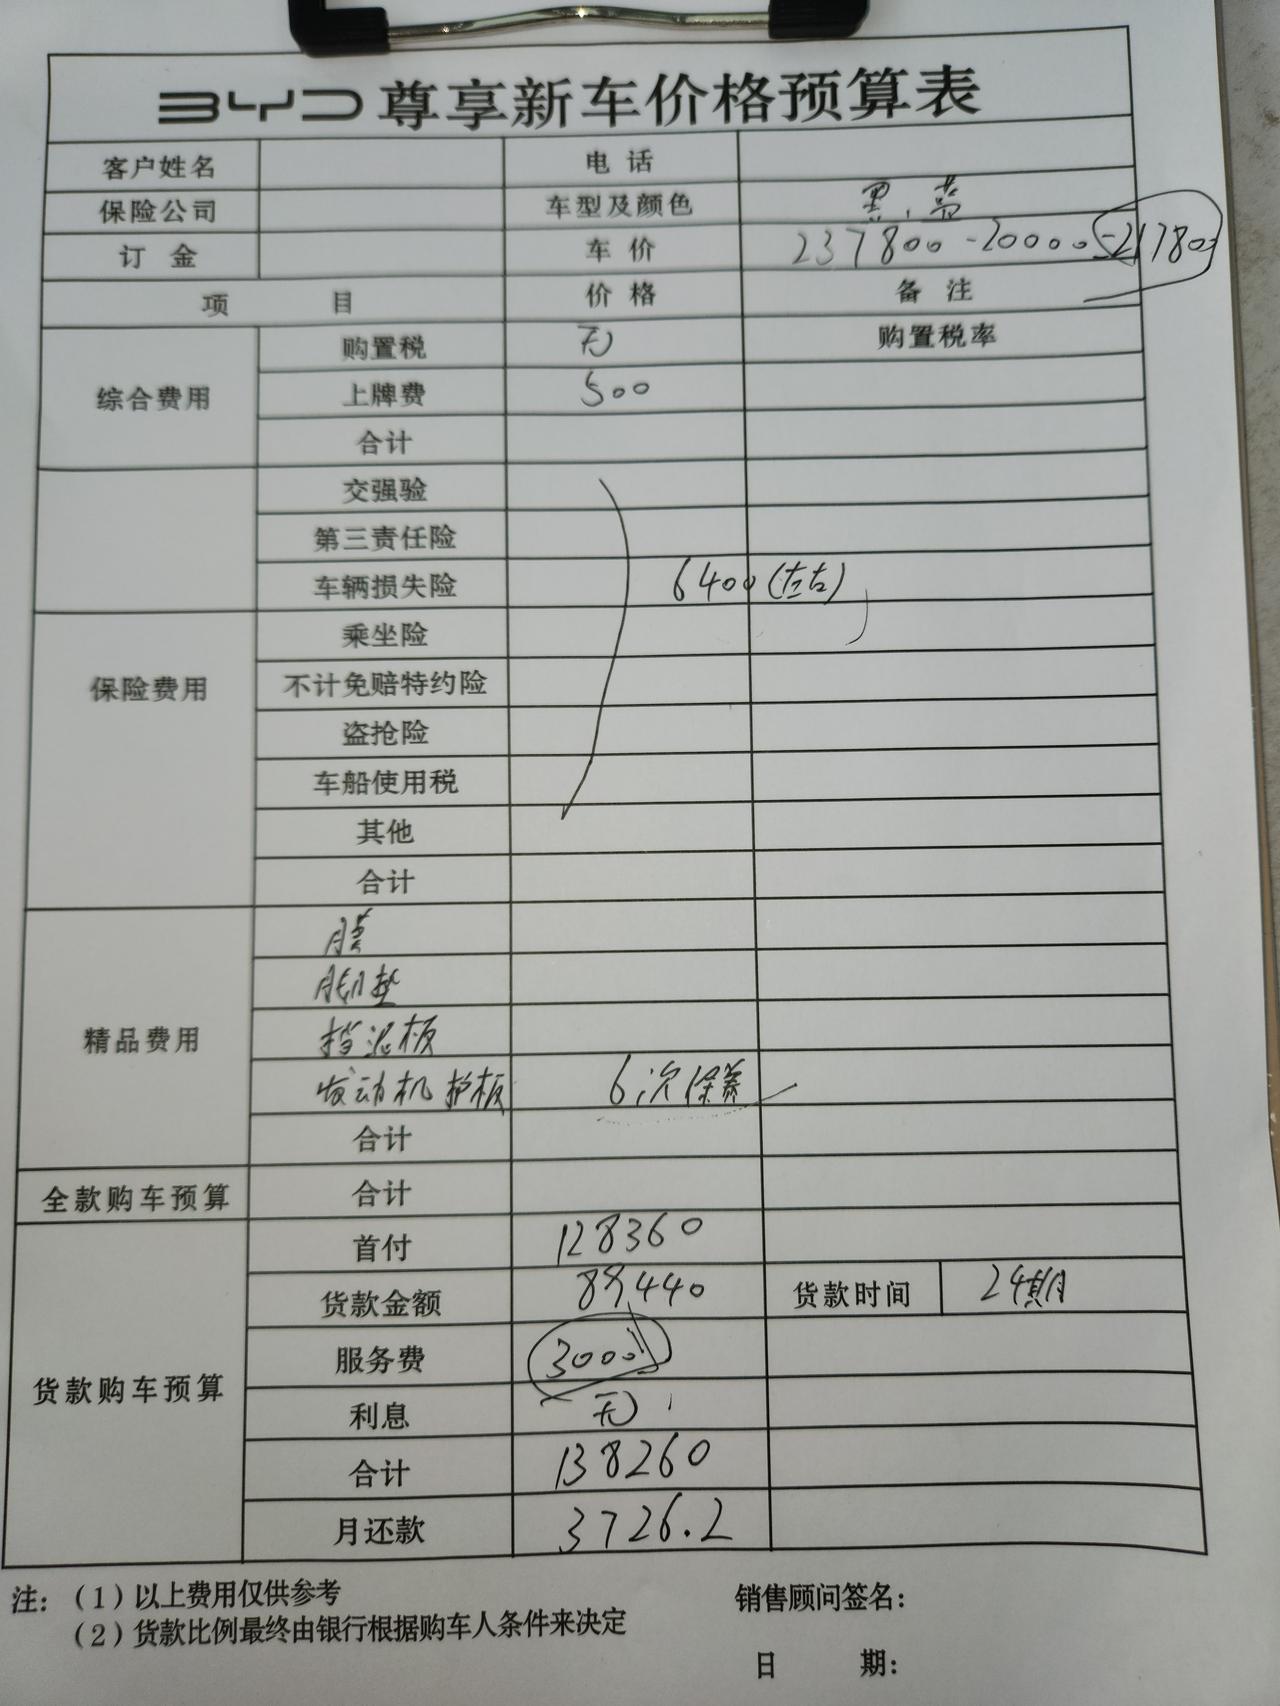 BYD 尊享新车价格预算表
客户姓名 电 话
保险公司 车型及颜色 黑.
订 金 车 价 237800-20000=217800
项 目 价 格 备 注
综合费用 购置税 无 购置税率
上牌费 500
合计
保险费用 交强验
第三责任险
车辆损失险 6400(左右)
乘坐险
不计免赔特约险
盗抢险
车船使用税
其他
合计
精品费用 膜
脚垫
挡泥板
发动机护板 6次保养
合计
全款购车预算 合计
货款购车预算 首付 128360
货款金额 89440 货款时间 24期
服务费 3000
利息 无
合计 138260
月还款 3726.2
注:(1)以上费用仅供参考 销售顾问签名:
(2)货款比例最终由银行根据购车人条件来决定
日 期: